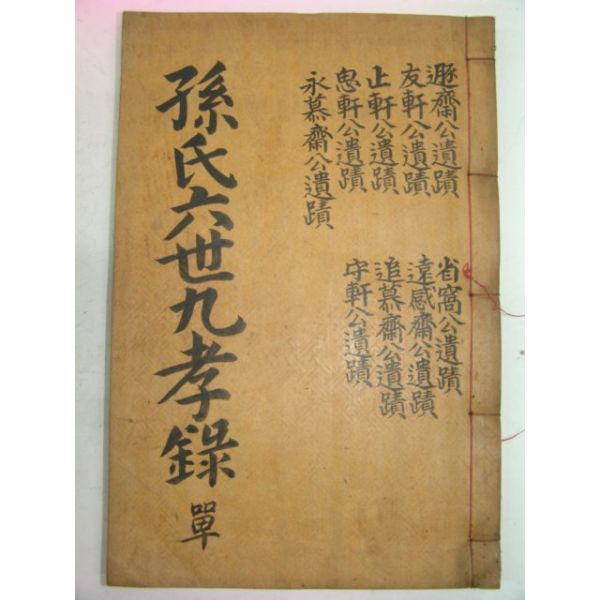 遯齋公遺蹟
友軒公遺蹟
止軒公遺蹟
思軒公遺蹟
永慕齋公遺蹟
省窩公遺蹟
遠感齋公遺蹟
追慕齋公遺蹟
守軒公遺蹟
孫氏六世九孝錄 單